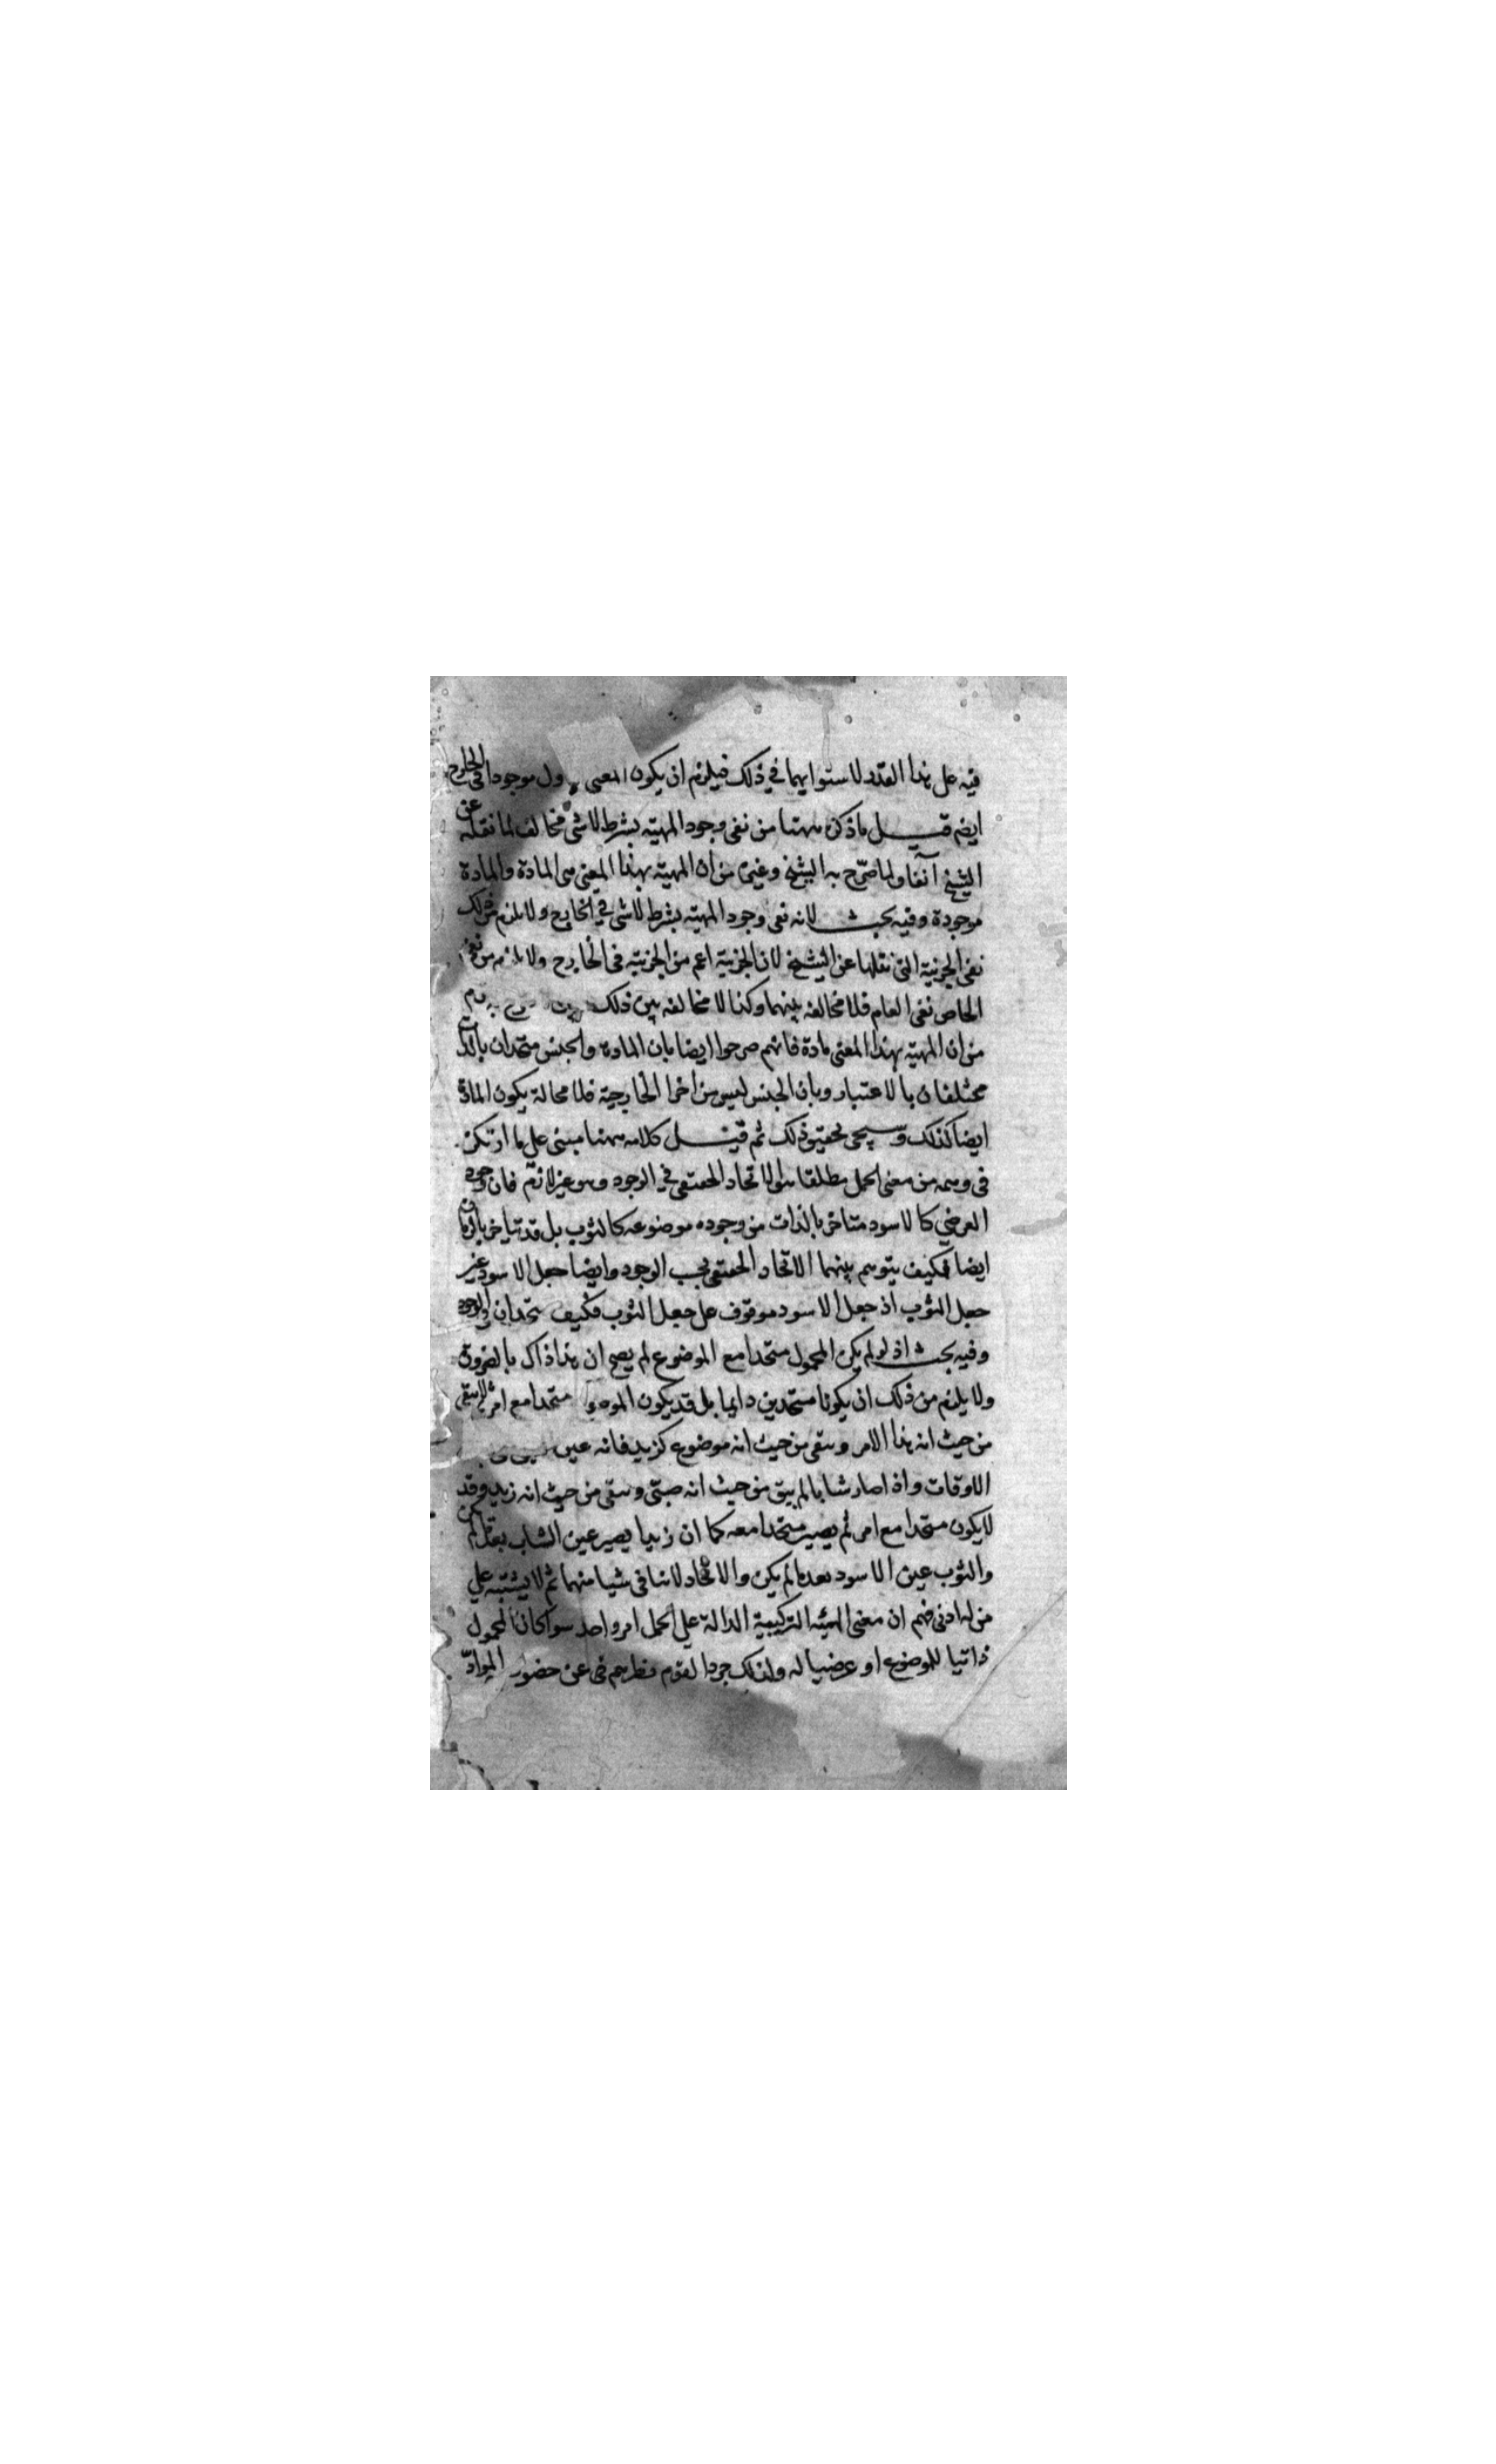 فيه على هذا القدر لاستوايهما في ذلك فيلزم ان يكون المعنى الاول موجودا في الخارج
ايضم قيل ما ذكره ههنا من نفى وجود المهية بشرط لا شئ مخالف لما نقله عن
الشيخ آنفا ولما صرّح به الشيخ وغيره من ان المهية بهذا المعنى هى المادة والمادة
موجودة وفيه بحث لانه نفى وجود المهية بشرط لا شى في الخارج ولا يلزم من ذلك
نفى الجزئية التى نقلها عن الشيخ لان الجزئية اعم من الجزئية فى الخارج ولا يلزم من نفى
الخاص نفى العام فلا مخالفه بينهما وكذا لا مخالفه بين ذلك
من ان المهية بهذا المعنى مادة فانهم صرحوا ايضا بان المادة والجنس متحدان بالذات
مختلفان بالاعتبار وبان الجنس ليس من اجزا الخارجية فلا محالة يكون المادة
ايضا كذلك وسيجى تحقيق ذلك ثم قيل كلامه ههنا مبنى على ما ارتكز
فى وهمه من معنى الحمل مطلقا هو الاتحاد الحقيقى في الوجود وهو غير لازم فان وجود
العرضي كالاسود متاخر بالذات من وجوده موضوعه كالثوب بل قد يتاخر بالزمان
ايضا فكيف يتوهم بينهما الاتحاد الحقيقى بحسب الوجود وايضا جعل الاسود غير
جعل الثوب اذ جعل الاسود موقوف على جعل الثوب فكيف يتحدان في الوجود
وفيه بحث اذ لو لم يكن المحمول متحدا مع الموضوع لم يصح ان هذا ذاك بالضرورة
ولا يلزم من ذلك ان يكونا متحدين دايما بل قد يكون الموضوع متحدا مع امر لا يبقى
من حيث انه هذا الامر ويبقى من حيث انه موضوع كزيد فانه عين
الاوقات واذا صار شابا لم يبق من حيث انه صبىّ ويبقى من حيث انه زيد وقد
لا يكون متحدا مع امر ثم يصير متحدا معه كما ان زيدا يصير عين الشاب بعد ما لم يكن
والثوب عين الاسود بعد ما لم يكن والاتحاد لا ينافى شيا منهما ثم لا يشتبه على
من له ادنى فهم ان معنى الهيئه التركيبية الدالة على الحمل امر واحد سوا كان المحمول
ذاتيا للموضوع او عرضيا له ولذلك جرد القوم نظرهم فى عن حضور الموادّ